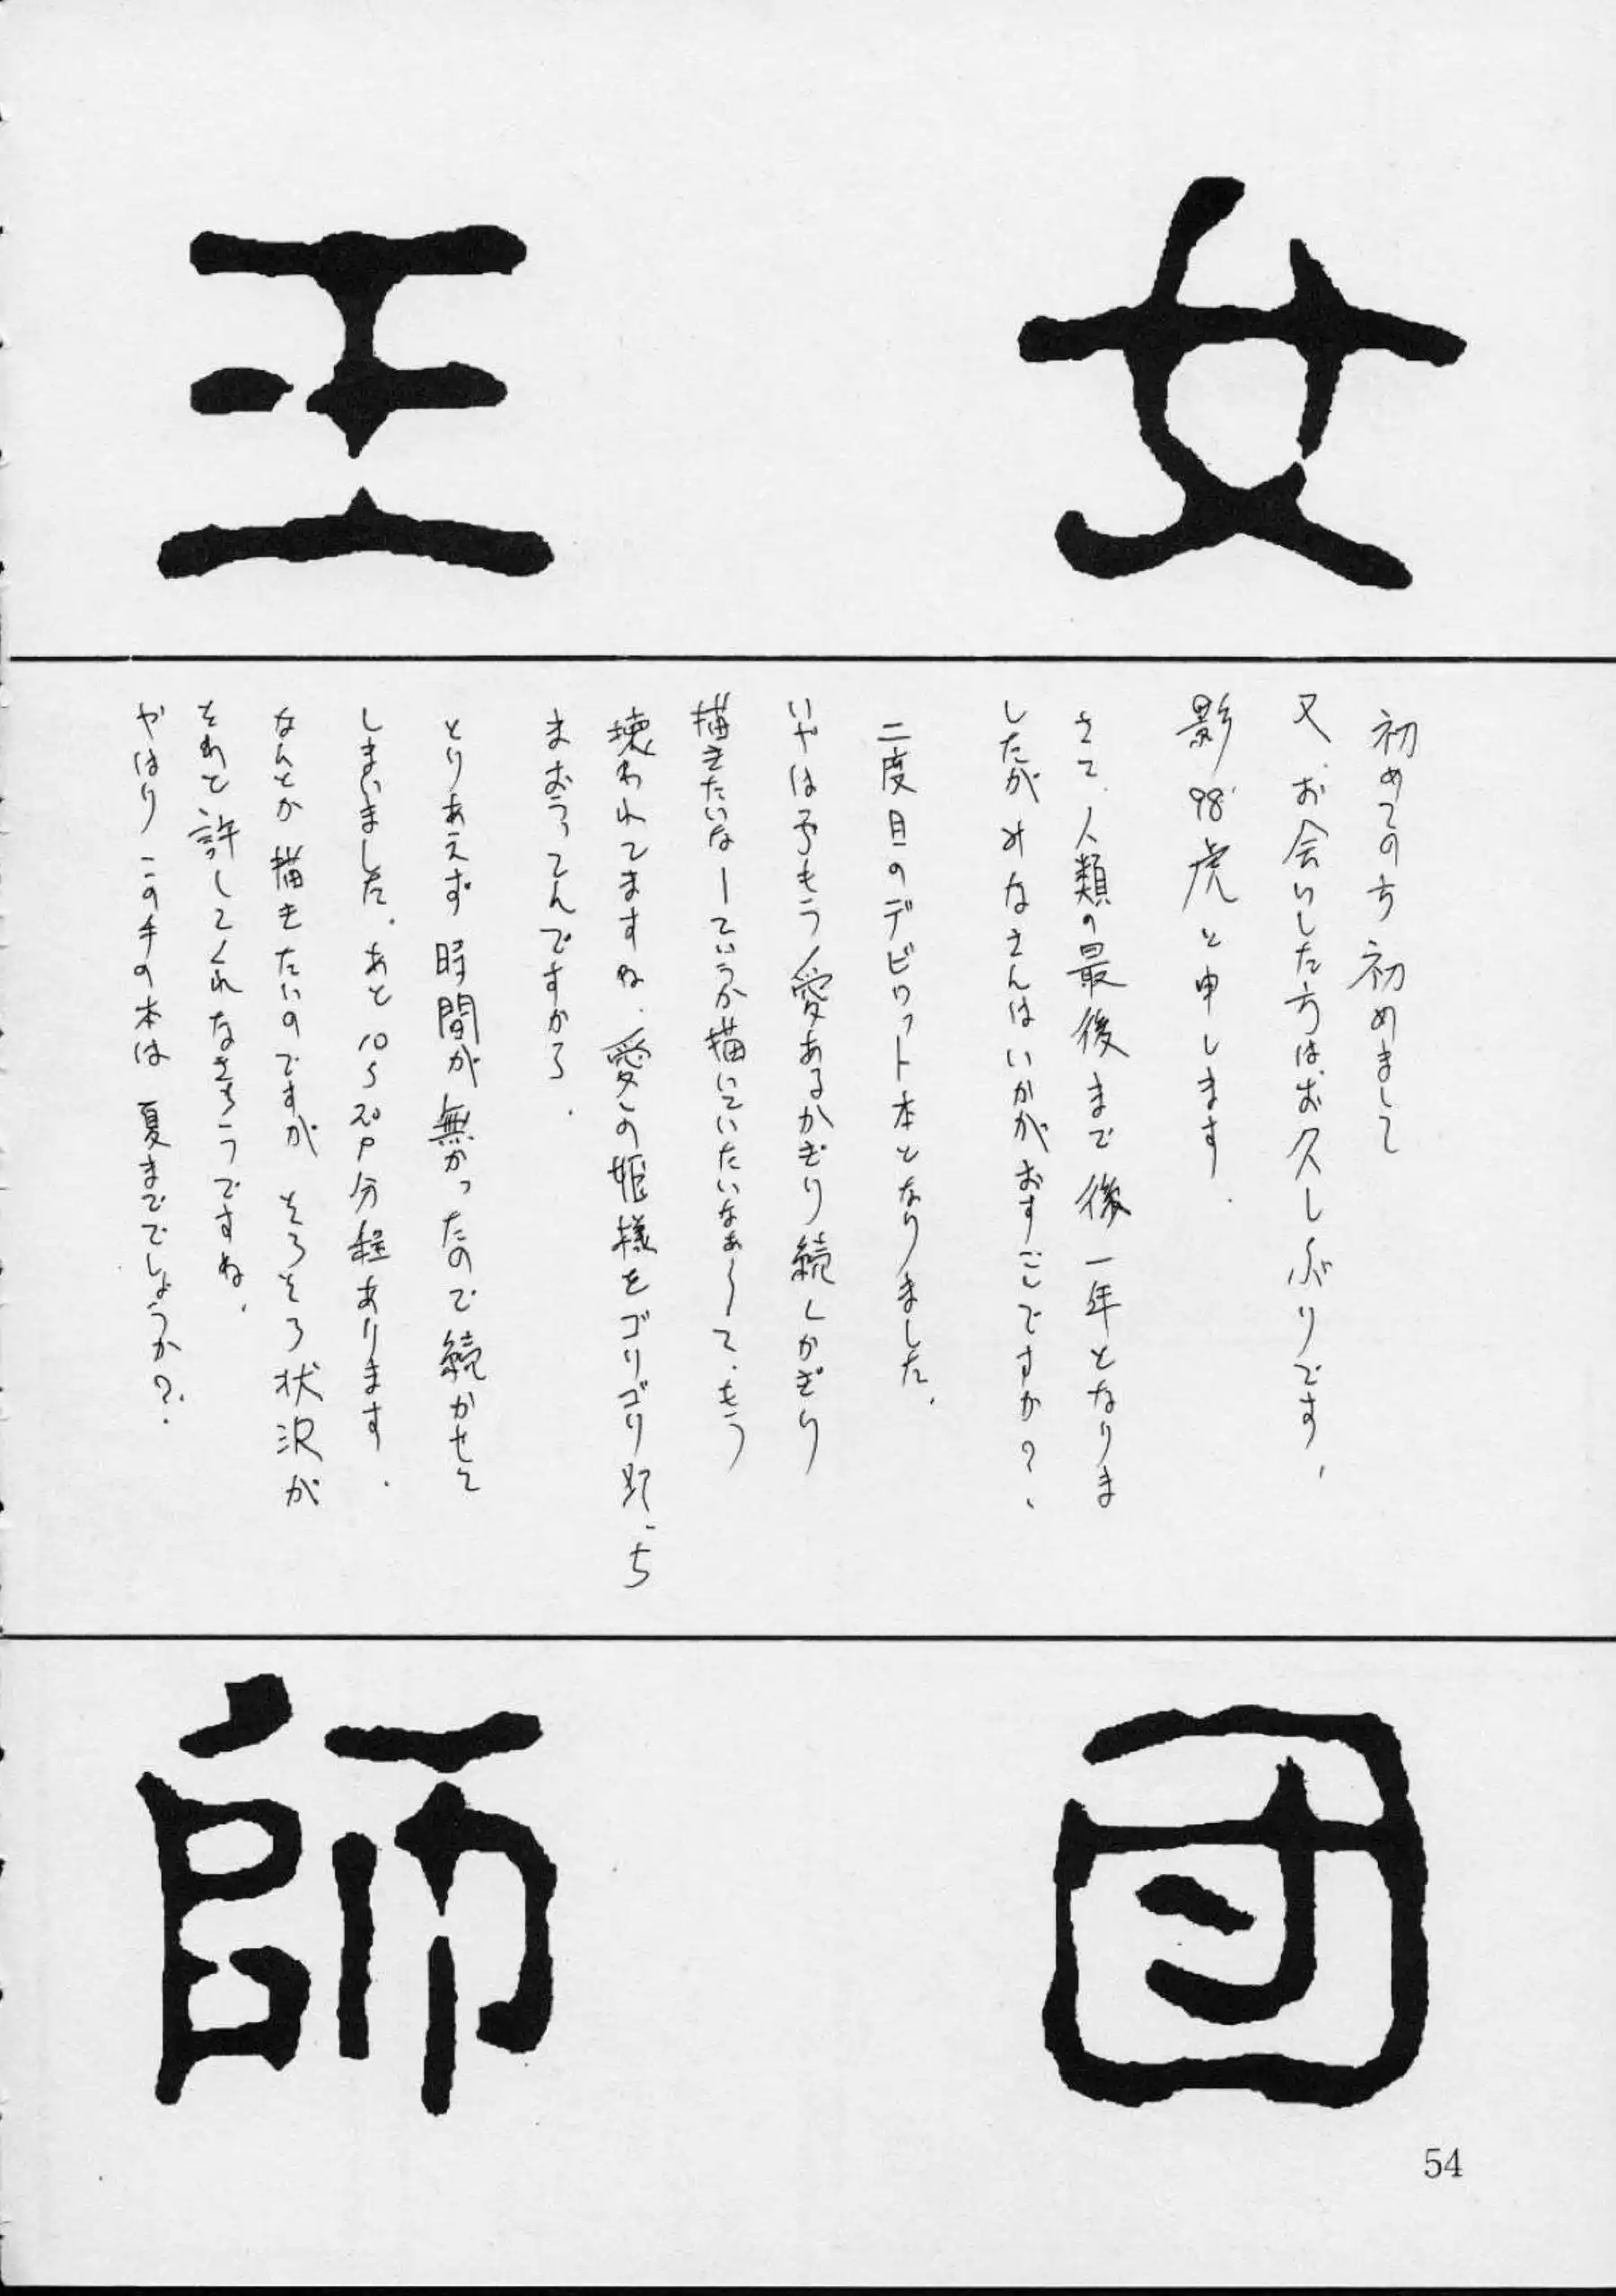 女
王
初めての方 初めまして
又、お会いした方は、お久しぶりです、
影98'虎と申します.
さて、人類の最後まで後一年となりま
したがみなさんはいかがおすごしですか?、
二度目のデビロット本となりました、
いやは予もう愛あるかぎり続しかぎり
描きたいなーていうか描いていたいなぁ〜て、もう
壊われてますね、愛しの姫様をゴリゴリ
まおうってんですから.
とりあえず時間が無かったので続かせて
しまいました、あと10〜20P分程あります.
なんとか描きたいのですが そろそろ状況が
それを許してくれなさそうですね、
やはりこの手の本は 夏まででしょうか?.
団
師
54